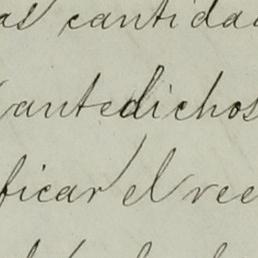 as cantida
antedichos
ficar el ree